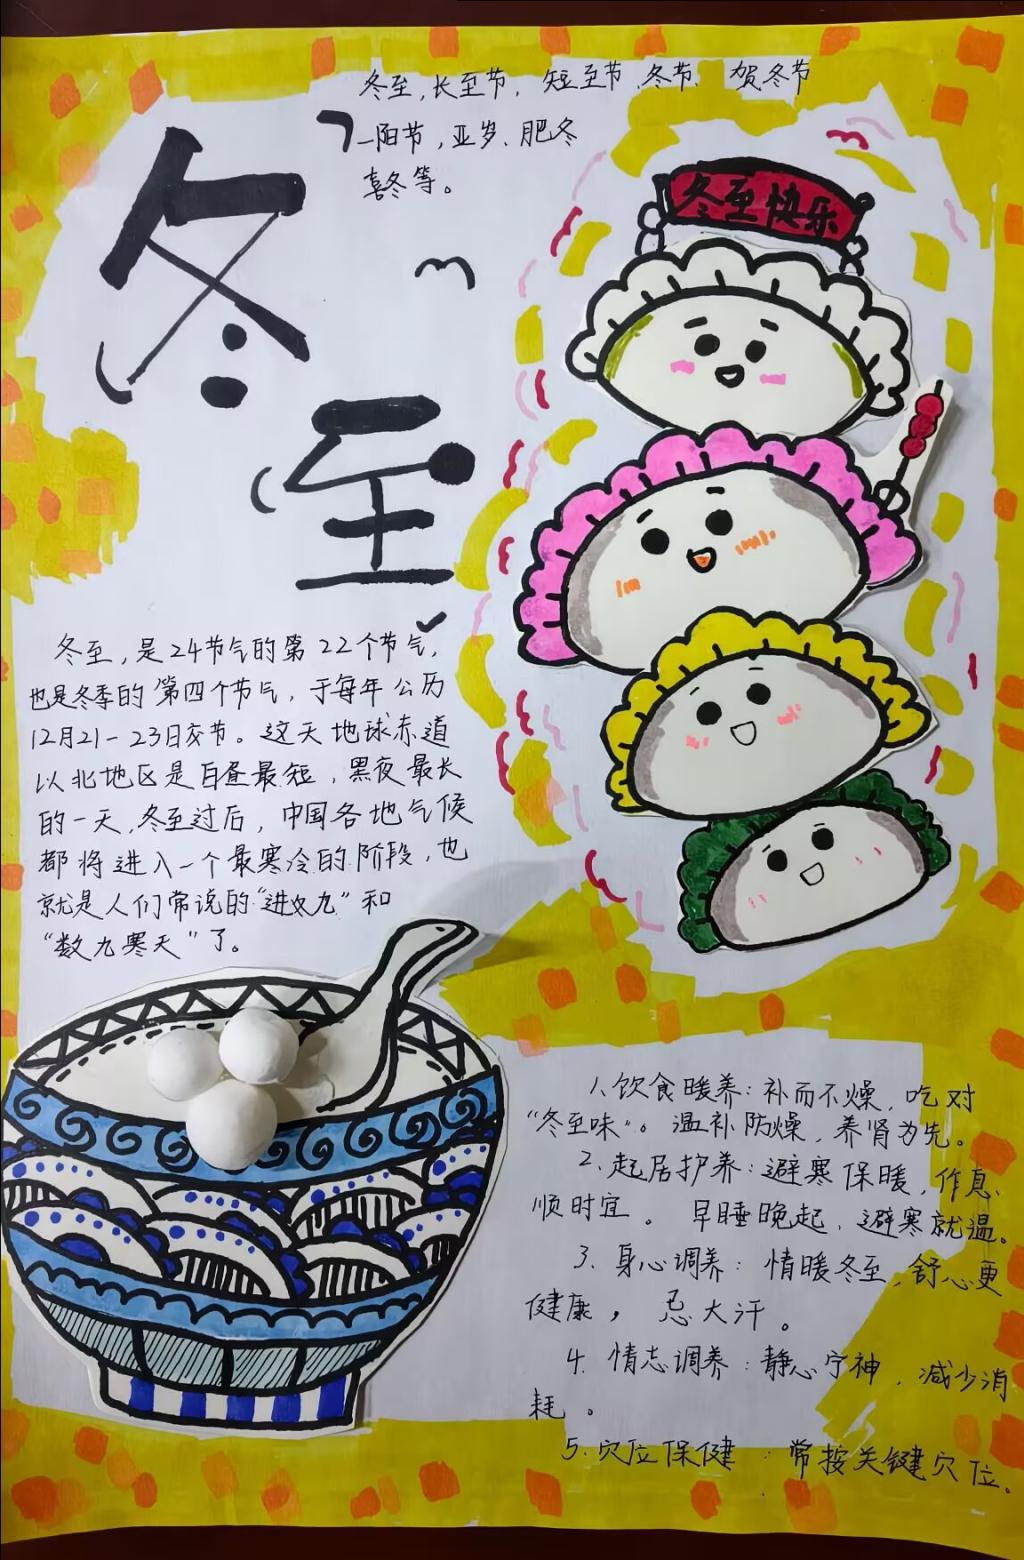 冬至，长至节，短至节、冬节、贺冬节
一阳节，亚岁、肥冬
喜冬等。
冬至快乐
冬
至
冬至，是24节气的第22个节气，
也是冬季的第四个节气，于每年公历
12月21-23日交节。这天地球赤道
以北地区是白昼最短，黑夜最长
的一天，冬至过后，中国各地气候
都将进入一个最寒冷的阶段，也
就是人们常说的“进九”和
“数九寒天”了。
1、饮食暖养：补而不燥，吃对
“冬至味”。温补防燥，养肾为先。
2、起居护养：避寒保暖，作息、
顺时宜。早睡晚起、避寒就温。
3、身心调养：情暖冬至，舒心更
健康，忌大汗。
4、情志调养：静心宁神，减少消
耗。
5、穴位保健：常按关键穴位。